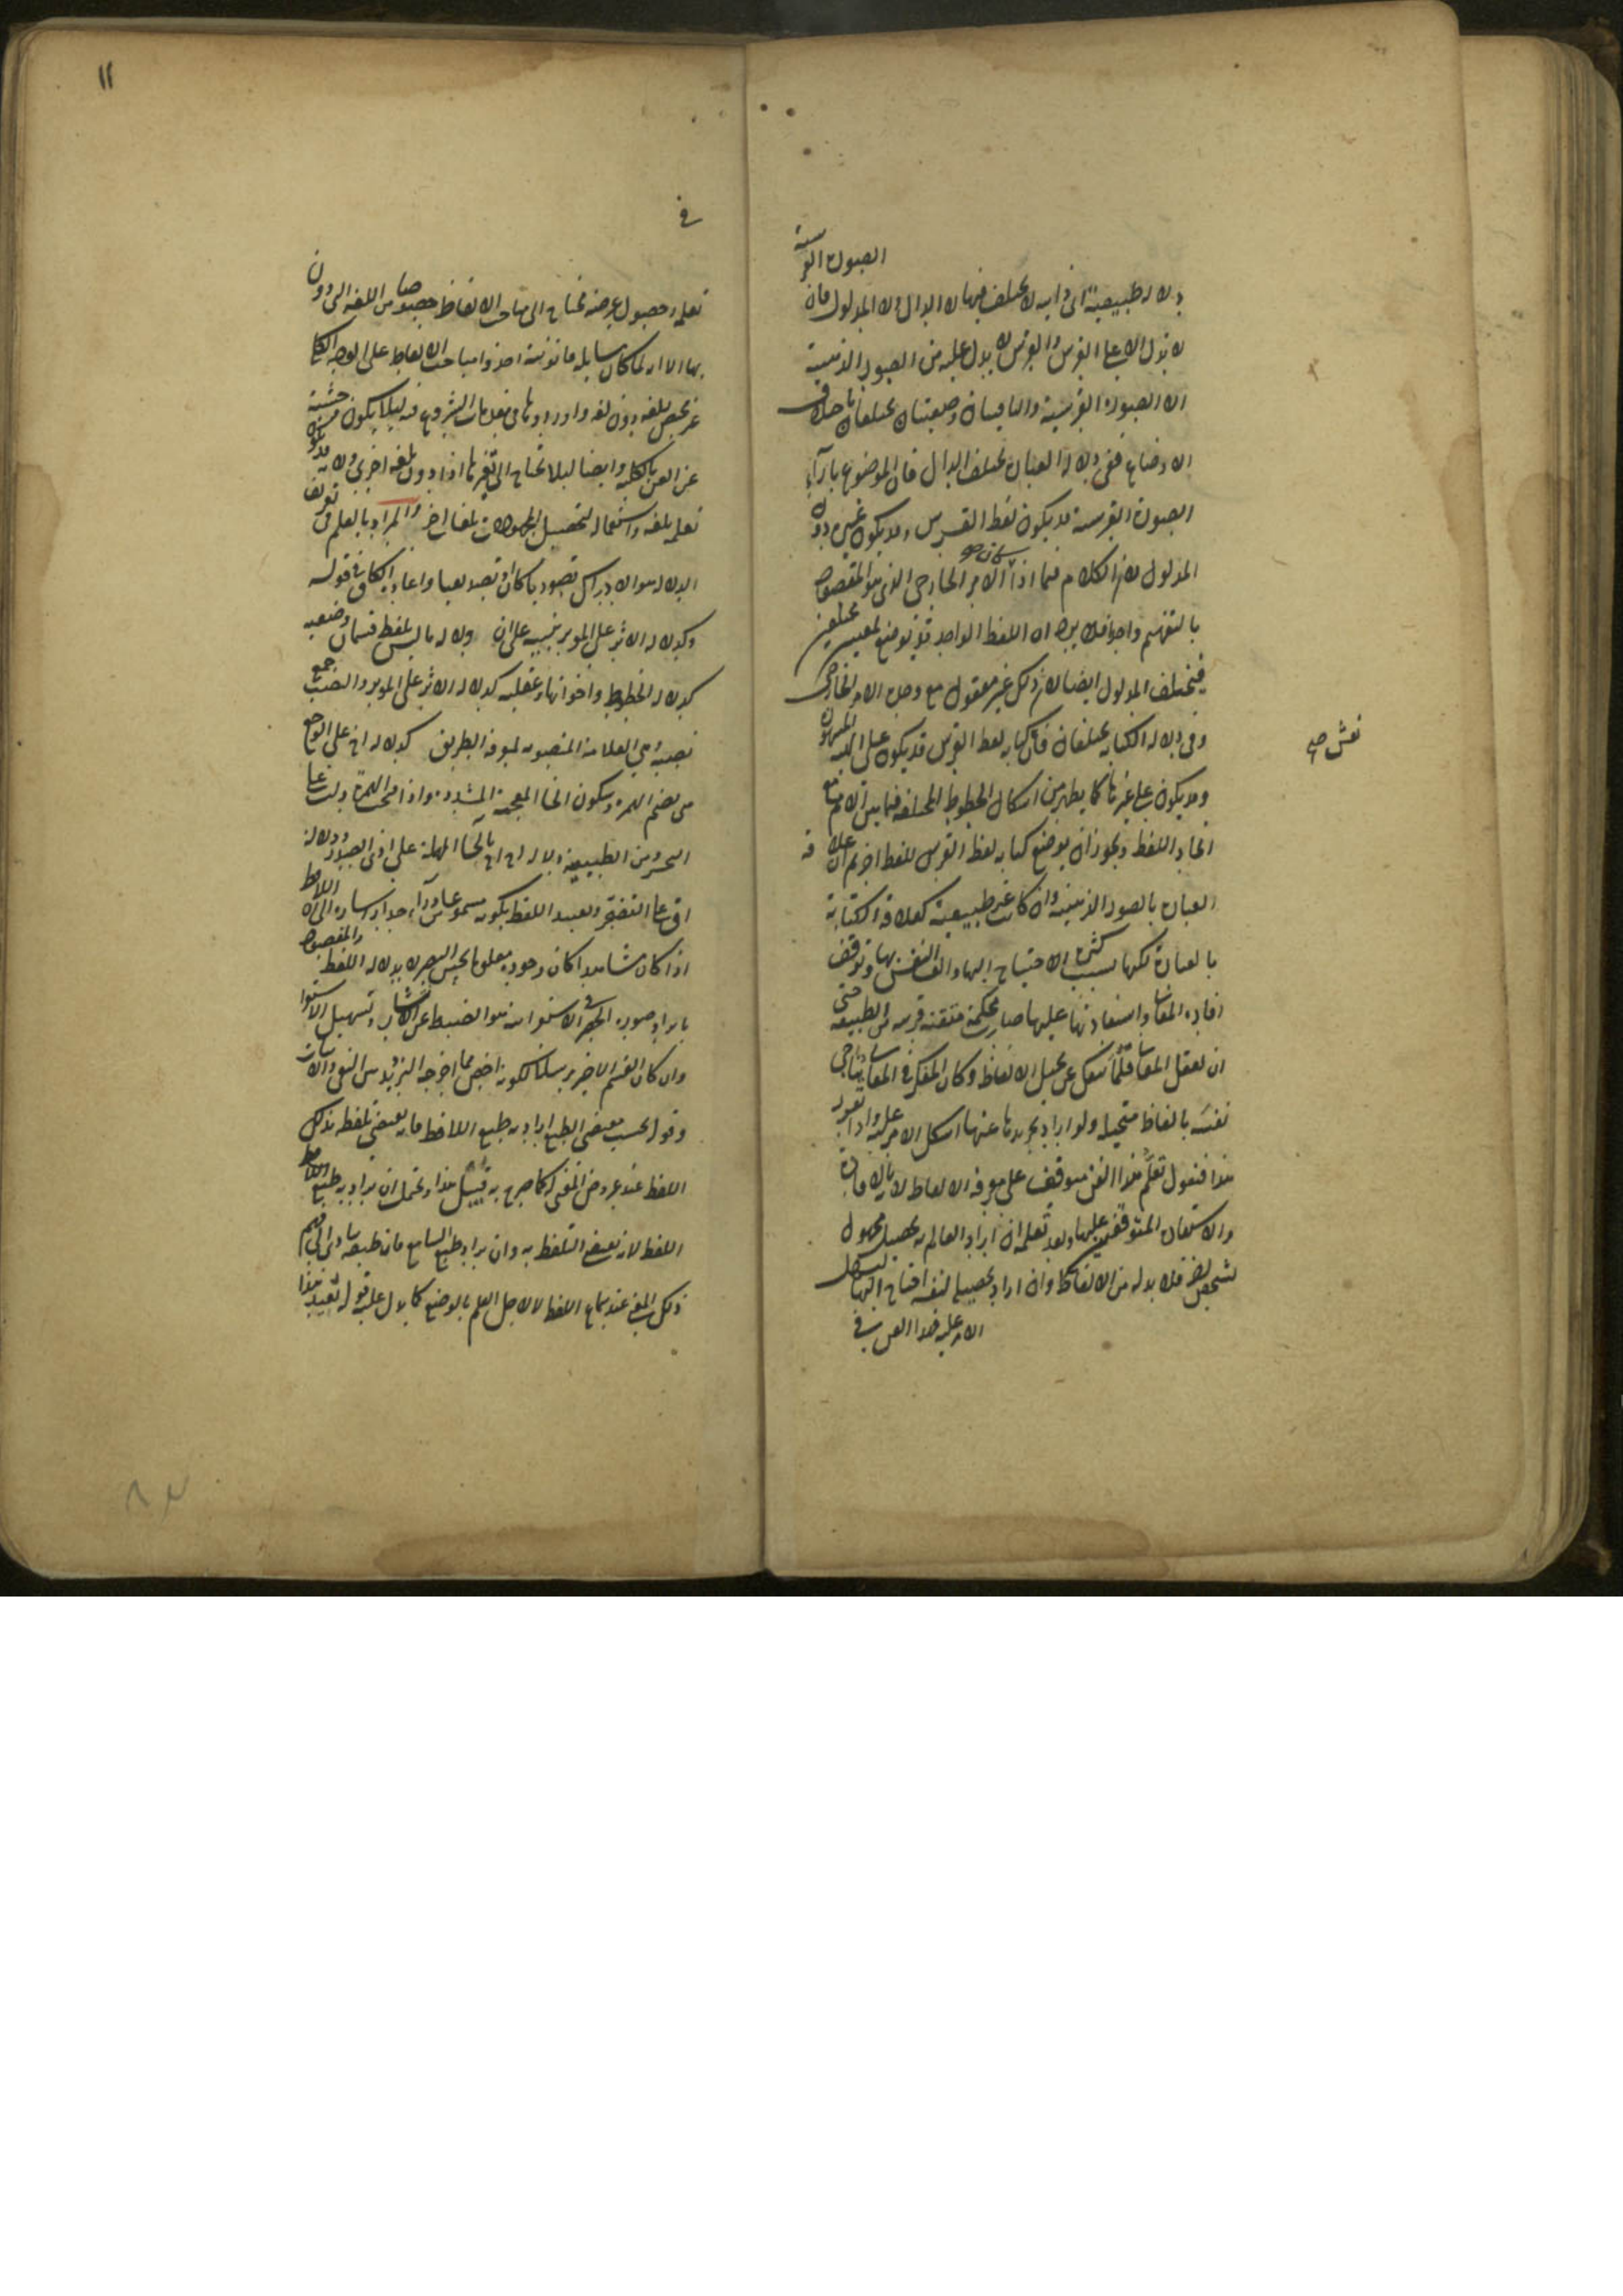 الصورة الفرسية
دلالة طبيعية اى ذاتية لا يختلف فيها لا الدال ولا المدلول فان
لا تدل الا على الفرس والفرس لا يدل عليه من الصور الذهنية
الا الصورة الفرسية والباقيتان وضعيتان يختلفان باختلاف
الاوضاع ففى دلالة العبارة يختلف الدال فان الموضوع بازاء
الصورة الفرسية قد يكون لفظ الفرس وقد يكون غيره دون
المدلول لان الكلام فيما اذا الامر الخارجى الذى هو المقصود
بالتفهيم واحد فلا يرد ان اللفظ الواحد قد يوضع لمعنيين مختلفين
فيختلف المدلول ايضا لان ذلك غير معقول مع وحدة الامر الخارجى
وفى دلالة الكتابة يختلفان فان كتابة لفظ الفرس قد يكون على الهيئة المشهورة
وقد يكون على غيرها كما يظهر من اشكال الخطوط المختلفة فيما بين الامم مع
اتحاد اللفظ ويجوز ان يوضع كتابة لفظ الفرس للفظ اخر ثم ان علاقة
العبارة بالصور الذهنية وان كانت غير طبيعية كعلاقة الكتابة
بالعبارة لكنها بسبب كثرة الاحتياج اليها والف النفس بها وتوقف
افادة المعانى واستفادتها عليها صارت محكمة متقنة قريبة من الطبيعية حتى
ان تعقل المعانى قلما ينفك عن تخيل الالفاظ وكان المفكر فى المعانى يناجى
نفسه بالفاظ متخيلة ولو اراد تجريدها عنها اشكل الامر عليه واذا تقرر
هذا فنقول تعلم هذا الفن متوقف على معرفة الالفاظ لانه بالافادة
والاستفادة المتوقفين عليها وبعد تعلمه ان اراد العالم به تحصيل مجهول
لشخص اخر فلا بد له من الالفاظ وان اراد تحصيله لنفسه احتاج اليها ليسهل
الامر عليه فهذا الفن فى
نقش صح
١١
فى
تعلمه وحصول غرضه محتاج الى مباحث الالفاظ خصوصا من اللغة التى دون
بها الا انه لما كان مسائله قانونية اخذوا مباحث الالفاظ على الوجه الكلى
غير مختص بلغة دون لغة واوردوها فى مقدمات الشروع فيه لئلا يكون
عن الفن بالكلية وايضا لئلا يحتاج الى تغيرها اذا دون بلغة اخرى ولانه قد يكون
تعلمه بلغة واستعماله لتحصيل المجهولات بلغات اخر والمراد بالعلم فى تعريف
الدلالة هو الادراك تصوريا كان او تصديقيا واعاد الكاف فى قوله
وكدلالة الاثر على المؤثر تنبيها على ان دلالة ما ليس بلفظ قسمان وضعية
كدلالة الخطوط واخواتها وعقلية كدلالة الاثر على المؤثر والنصب جمع
نصبة وهى العلامة المنصوبة لمعرفة الطريق كدلالة اخ على الوجع
هى بضم الهمزة وسكون الخاء المعجمة المشددة واذا فتحت الهمزة دلت على
التحسر ومن الطبيعية دلالة اح اح بالحاء المهملة على اذى الصدر ودلالة
اف على التضجر وتقييد اللفظ بكونه مسموعا من وراء جدار اشارة الى ان اللافظ
اذا كان مشاهدا كان وجوده معلوما بحس البصر لا بدلالة اللفظ والمقصود
بايراد صورة الحصر فى الاستقراء هو الضبط عن الانتشار وتسهيل الاستقراء
وان كان القسم الاخير مرسلا لكونه اخص مما اخرجه الترديد بين النفى والاثبات
وقوله بحسب مقتضى الطبع اراد به طبع اللافظ فانه يقتضى تلفظه بذلك
اللفظ عند عروض المعنى كما صرح به قبيل هذا ويحتمل ان يراد به طبع
اللفظ لانه يقتضى التلفظ به وان يراد طبع السامع فان طبعه يتأدى الى فهم
ذلك المعنى عند سماع اللفظ لا لاجل العلم بالوضع كما دل عليه قوله تقييد هذا